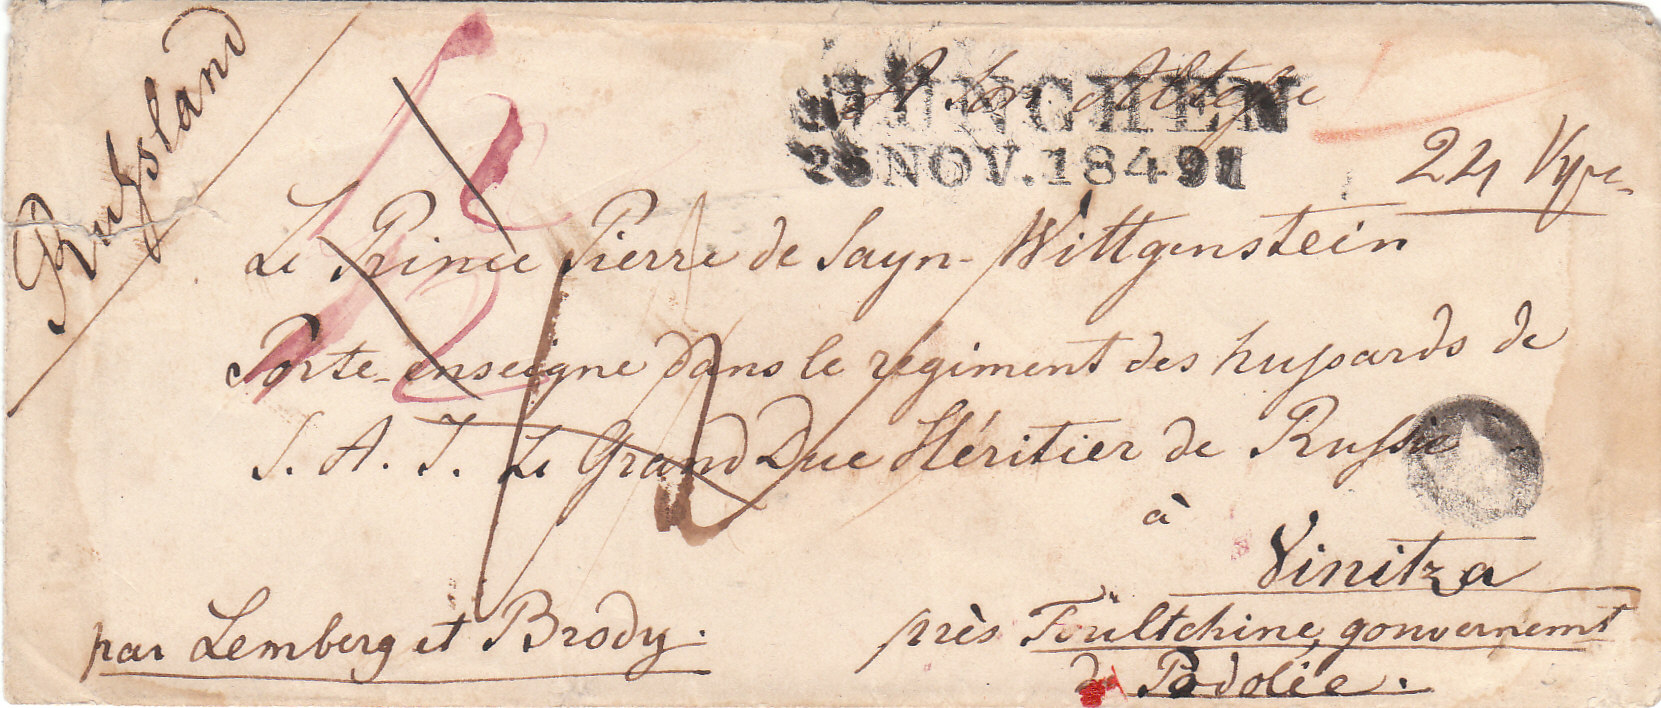 Rußland
MÜNCHEN
NOV. 1849
A Son Altesse
Le Prince Pierre de Sayn-Wittgenstein
Porte-enseigne dans le régiment des hussards de
S. A. I. Le Grand Duc Héritier de Russie
à
Vinitza
par Lemberg et Brody.
près Toultchine, gouvernement
de Podolie.